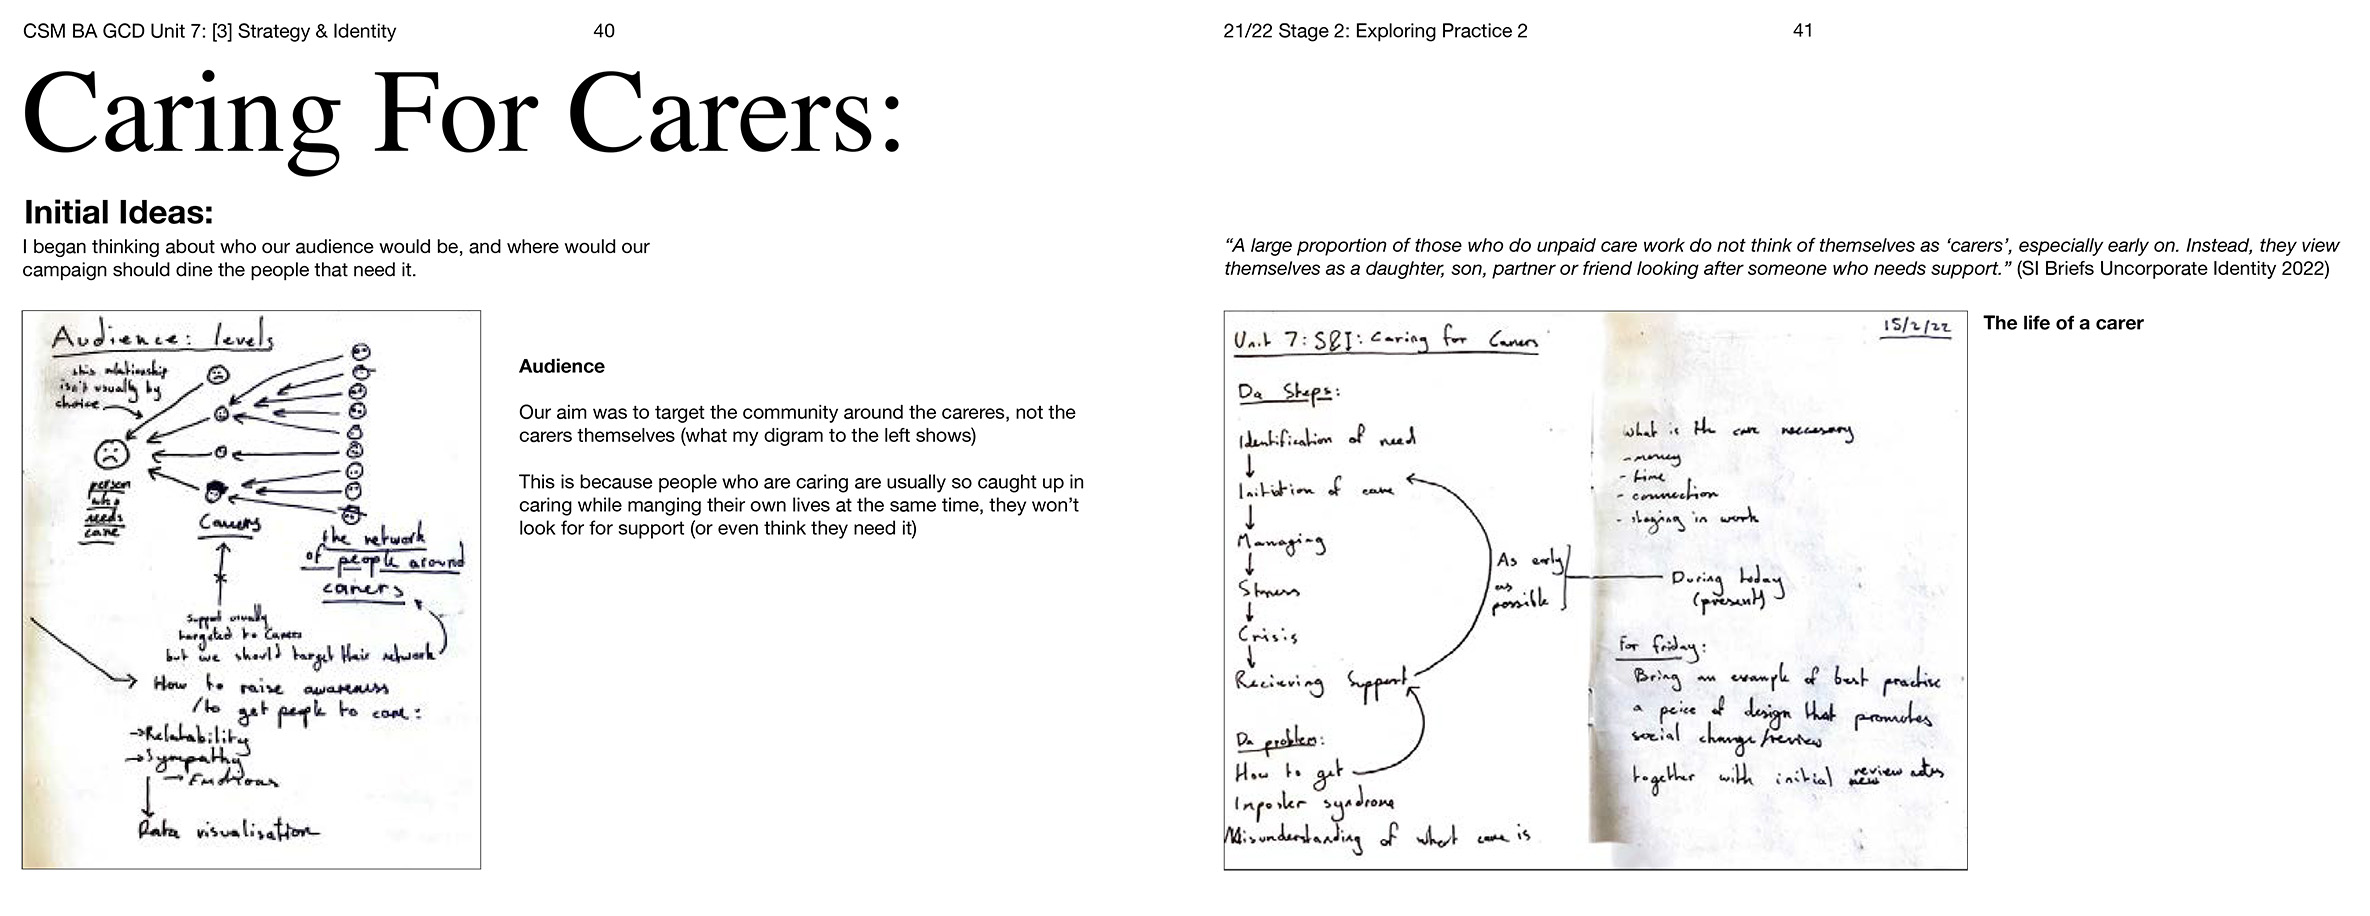 CSM BA GCD Unit 7: [3] Strategy & Identity
40
Caring For Carers:
Initial Ideas:
I began thinking about who our audience would be, and where would our
campaign should dine the people that need it.
Audience: levels
this relationship
isn't usually by
choice
person
who
needs
care
Carers
the network
of people around
carers
support usually
targeted to Carers
but we should target their network
How to raise awareness
/to get people to care:
→Relatability
→Sympathy
→Emotions
Data visualisation
Audience
Our aim was to target the community around the careres, not the
carers themselves (what my digram to the left shows)
This is because people who are caring are usually so caught up in
caring while manging their own lives at the same time, they won’t
look for for support (or even think they need it)
21/22 Stage 2: Exploring Practice 2
41
“A large proportion of those who do unpaid care work do not think of themselves as ‘carers’, especially early on. Instead, they view
themselves as a daughter, son, partner or friend looking after someone who needs support.” (SI Briefs Uncorporate Identity 2022)
Unit 7: S&I: Caring for Carers
Da Steps:
Identification of need
Initiation of care
Managing
Stress
Crisis
Recieving Support
As early
as
possible
Da problem:
How to get
Imposter syndrome
Misunderstanding of what care is
15/2/22
What is the care neccesary
- money
- time
- connection
- staying in work
During today
(present)
For friday:
Bring an example of best practise
a peice of design that promotes
social change/review
together with initial review notes
new
The life of a carer